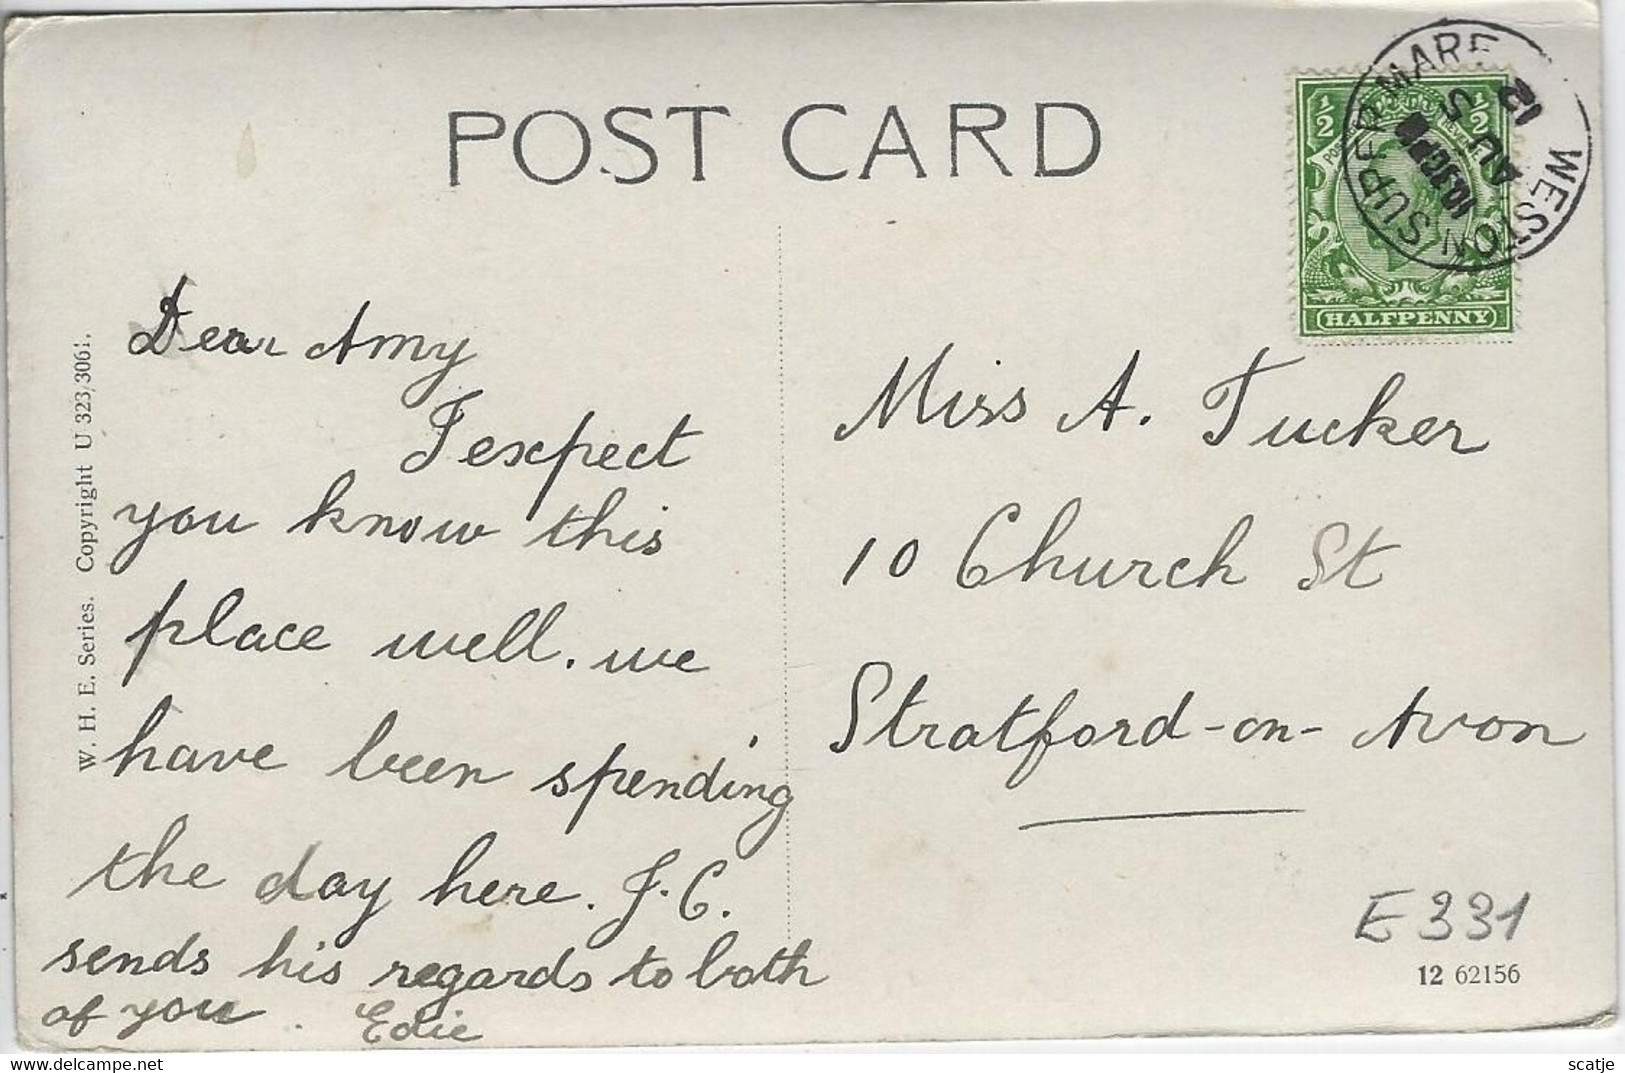 POST CARD
WESTON SUPER MARE
AU 5
12
1/2
1/2
HALFPENNY
W. H. E. Series. Copyright U 323/3061.
Dear Amy
I expect
you know this
place well. we
have been spending
the day here. J. C.
sends his regards to both
of you. Edie
Miss A. Tucker
10 Church St
Stratford-on-Avon
E331
12 62156
scatje